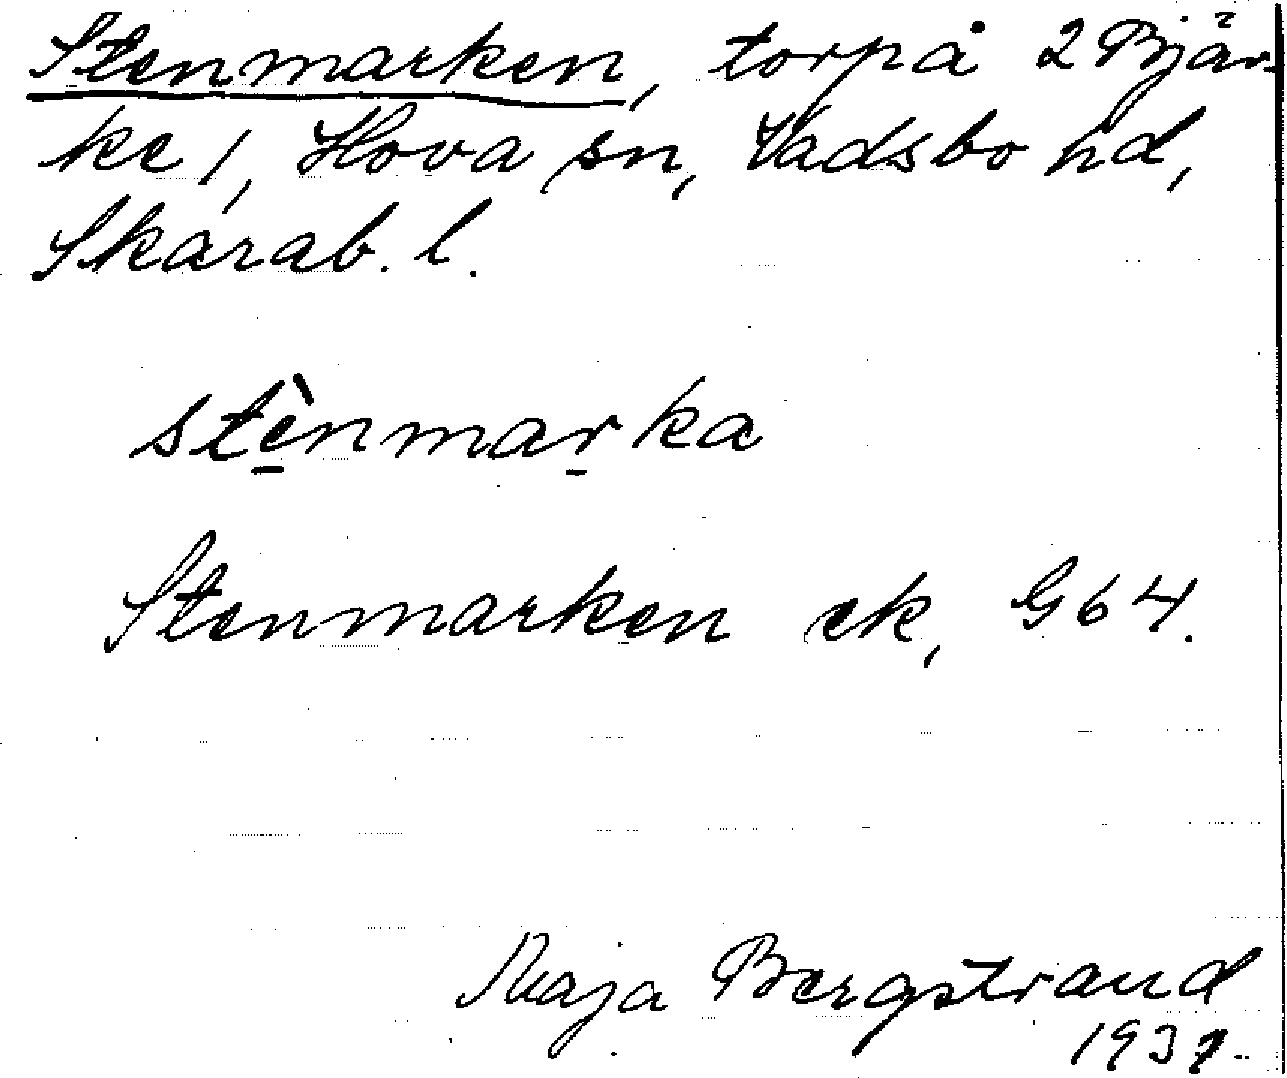 Stenmarken, torp å 2 Bjär-
ke 1, Hova sn, Vadsbo hd,
Skarab. l.
stè̱nmar̲ka
Stenmarken ek, G64.
Maja Bergstrand
1937.